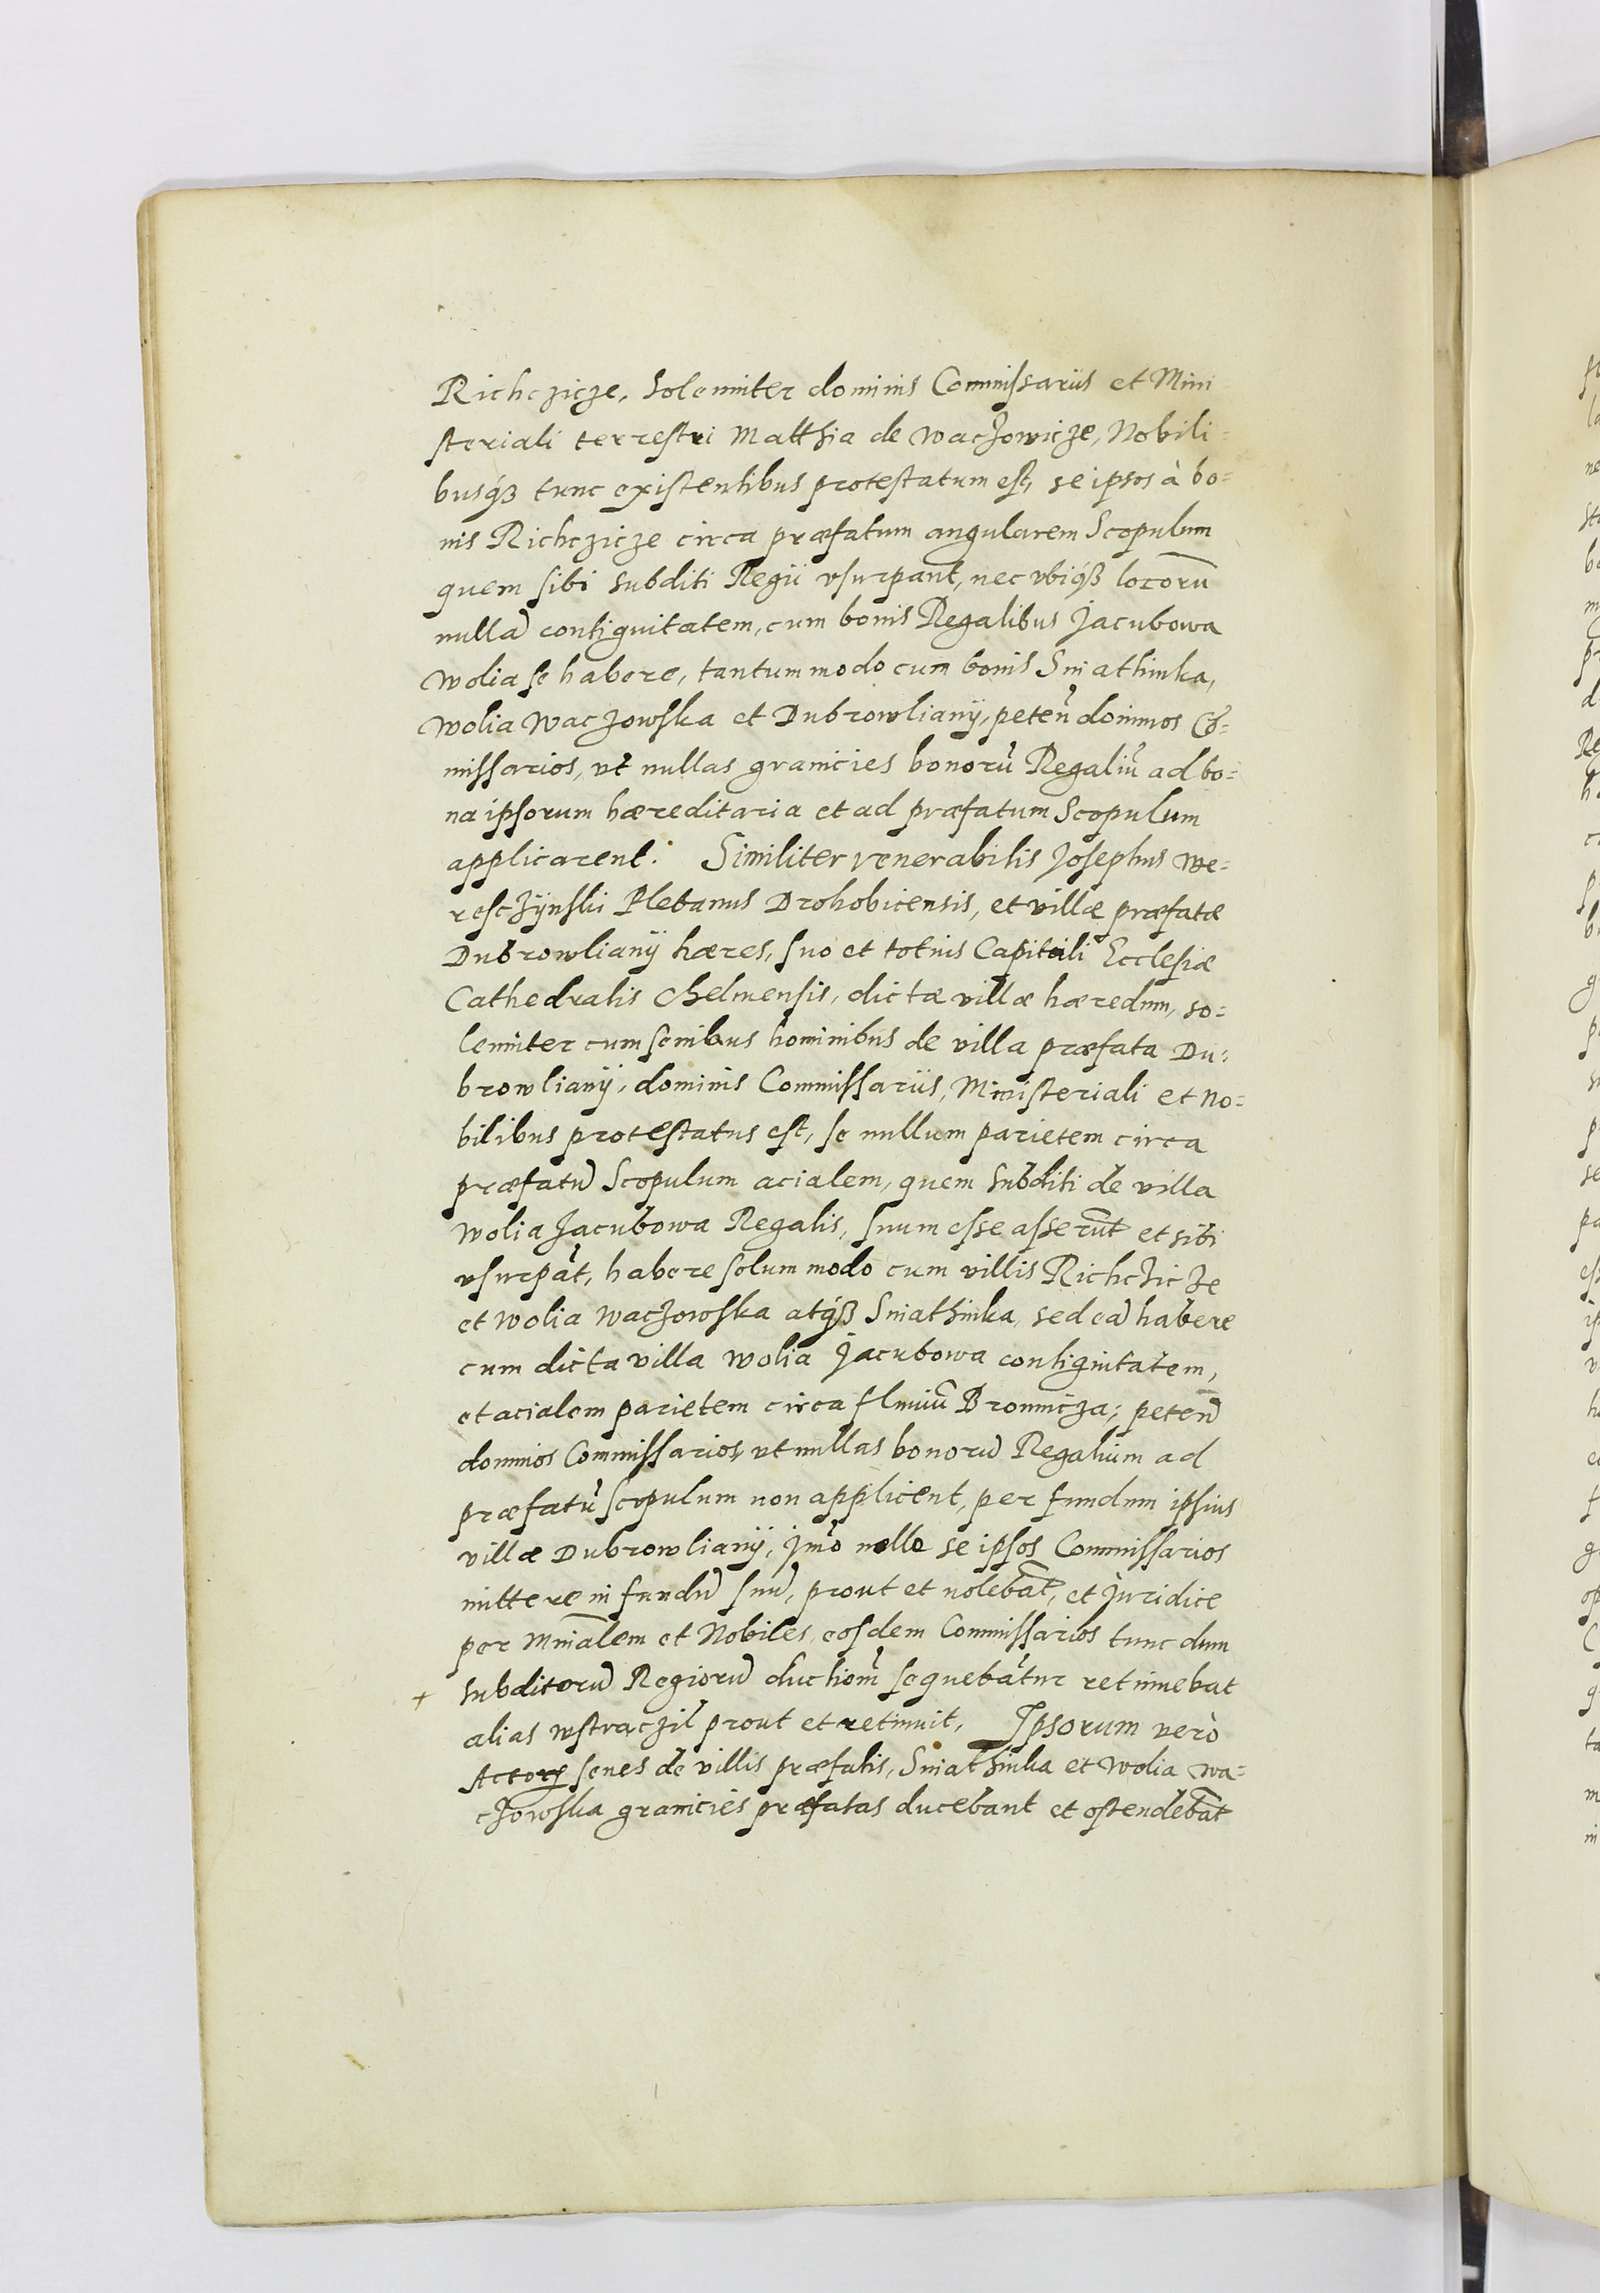 Richczicze, Solemniter dominis Commissariis et Mini
steriali terrestri Matthia de Waczowicze, Nobili-
busq₃ tunc existentibus protestatum est, se ipsos à bo-
nis Richczicze circa præfatum angularem Scopulum
quem sibi subditi Regii vsurpant, nec vbiq₃ locorũ
nullã contiguitatem, cum bonis Regalibus Jacubowa
Wolia se habere, tantummodo cum bonis Sniathinka,
Wolia Waczowska et Dubrowlianÿ, peteñ dominos Cõ-
missarios, vt nullas granicies bonorũ Regaliũ ad bo-
na ipsorum hæreditaria et ad præfatum Scopulum
applicarent. Similiter venerabilis Josephus We-
resczÿnskii Plebanus Drohobicensis, et villæ præfatæ
Dubrowlianÿ hæres, suo et totius Capituli Ecclesiæ
Cathedralis Chelmensis, dictæ villæ hæredum, so-
lemniter cum senibus hominibus de villa præfata Du-
browlianÿ, dominis Commissariis, Ministeriali et No-
bilibus protestatus est, se nullum parietem circa
præfatũ Scopulum acialem, quem subditi de villa
Wolia Jacubowa Regalis, suum esse asserũt et sibi
vsurpãt, habere solummodo cum villis Richczicze
et Wolia Waczowska atq₃ Sniathinka, sed eã habere
cum dicta villa Wolia Jacubowa contiguitatem,
et acialem parietem circa fluuiũ Bronnicza; peteñ
dominos Commissarios, vt nullas bonorũ Regalium ad
præfatũ scopulum non applicent, per fundum ipsius
villæ Dubrowlianÿ, Jmò nolle se ipsos Commissarios
mittere in fundũ suũ, prout et nolebãt, et juridice
per Mniãlem et Nobiles, eosdem Commissarios tunc dum
+ subditorũ Regiorũ ductionẽ sequebãtur retinuebat
alias wstraczil prout et retinuit, Ipsorum verò
Actorũ senes de villis præfatis, Sniathinka et Wolia Wa-
czowska granicies præfatas ducebant et ostendebãt